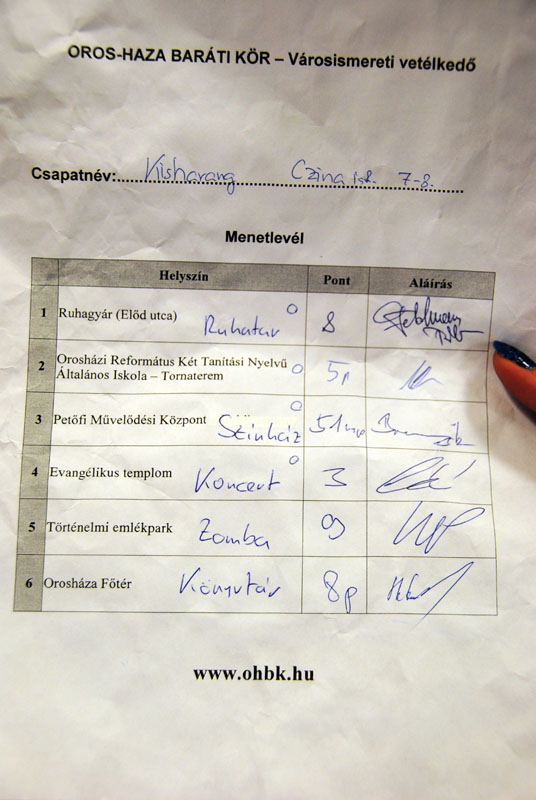 OROS-HAZA BARÁTI KÖR – Városismereti vetélkedő
Csapatnév: Kisharang Czina 7-8.
Menetlevél
Helyszín Pont Aláírás
1 Ruhagyár (Előd utca) Ruhatár 8
2 Orosházi Református Két Tanítási Nyelvű
Általános Iskola – Tornaterem 5p
3 Petőfi Művelődési Központ Színház 51mp
4 Evangélikus templom Koncert 3
5 Történelmi emlékpark Zomba 9
6 Orosháza Főtér Könyvtár 8p
www.ohbk.hu